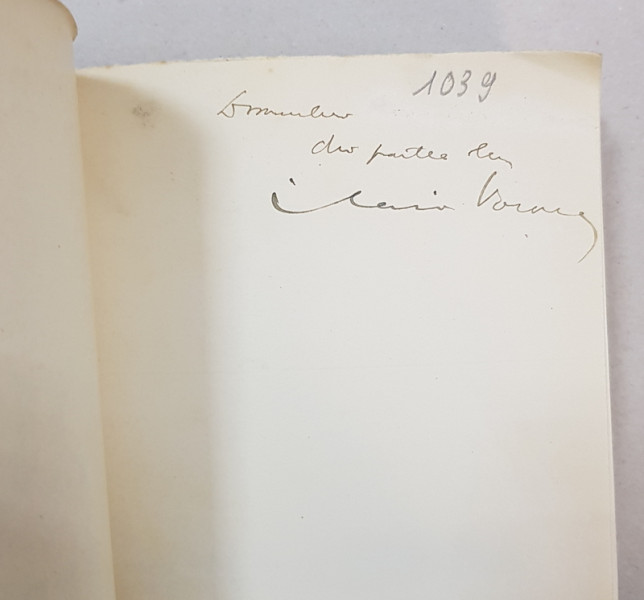 1039
Domnului
din partea lui
Ilarie Voronca